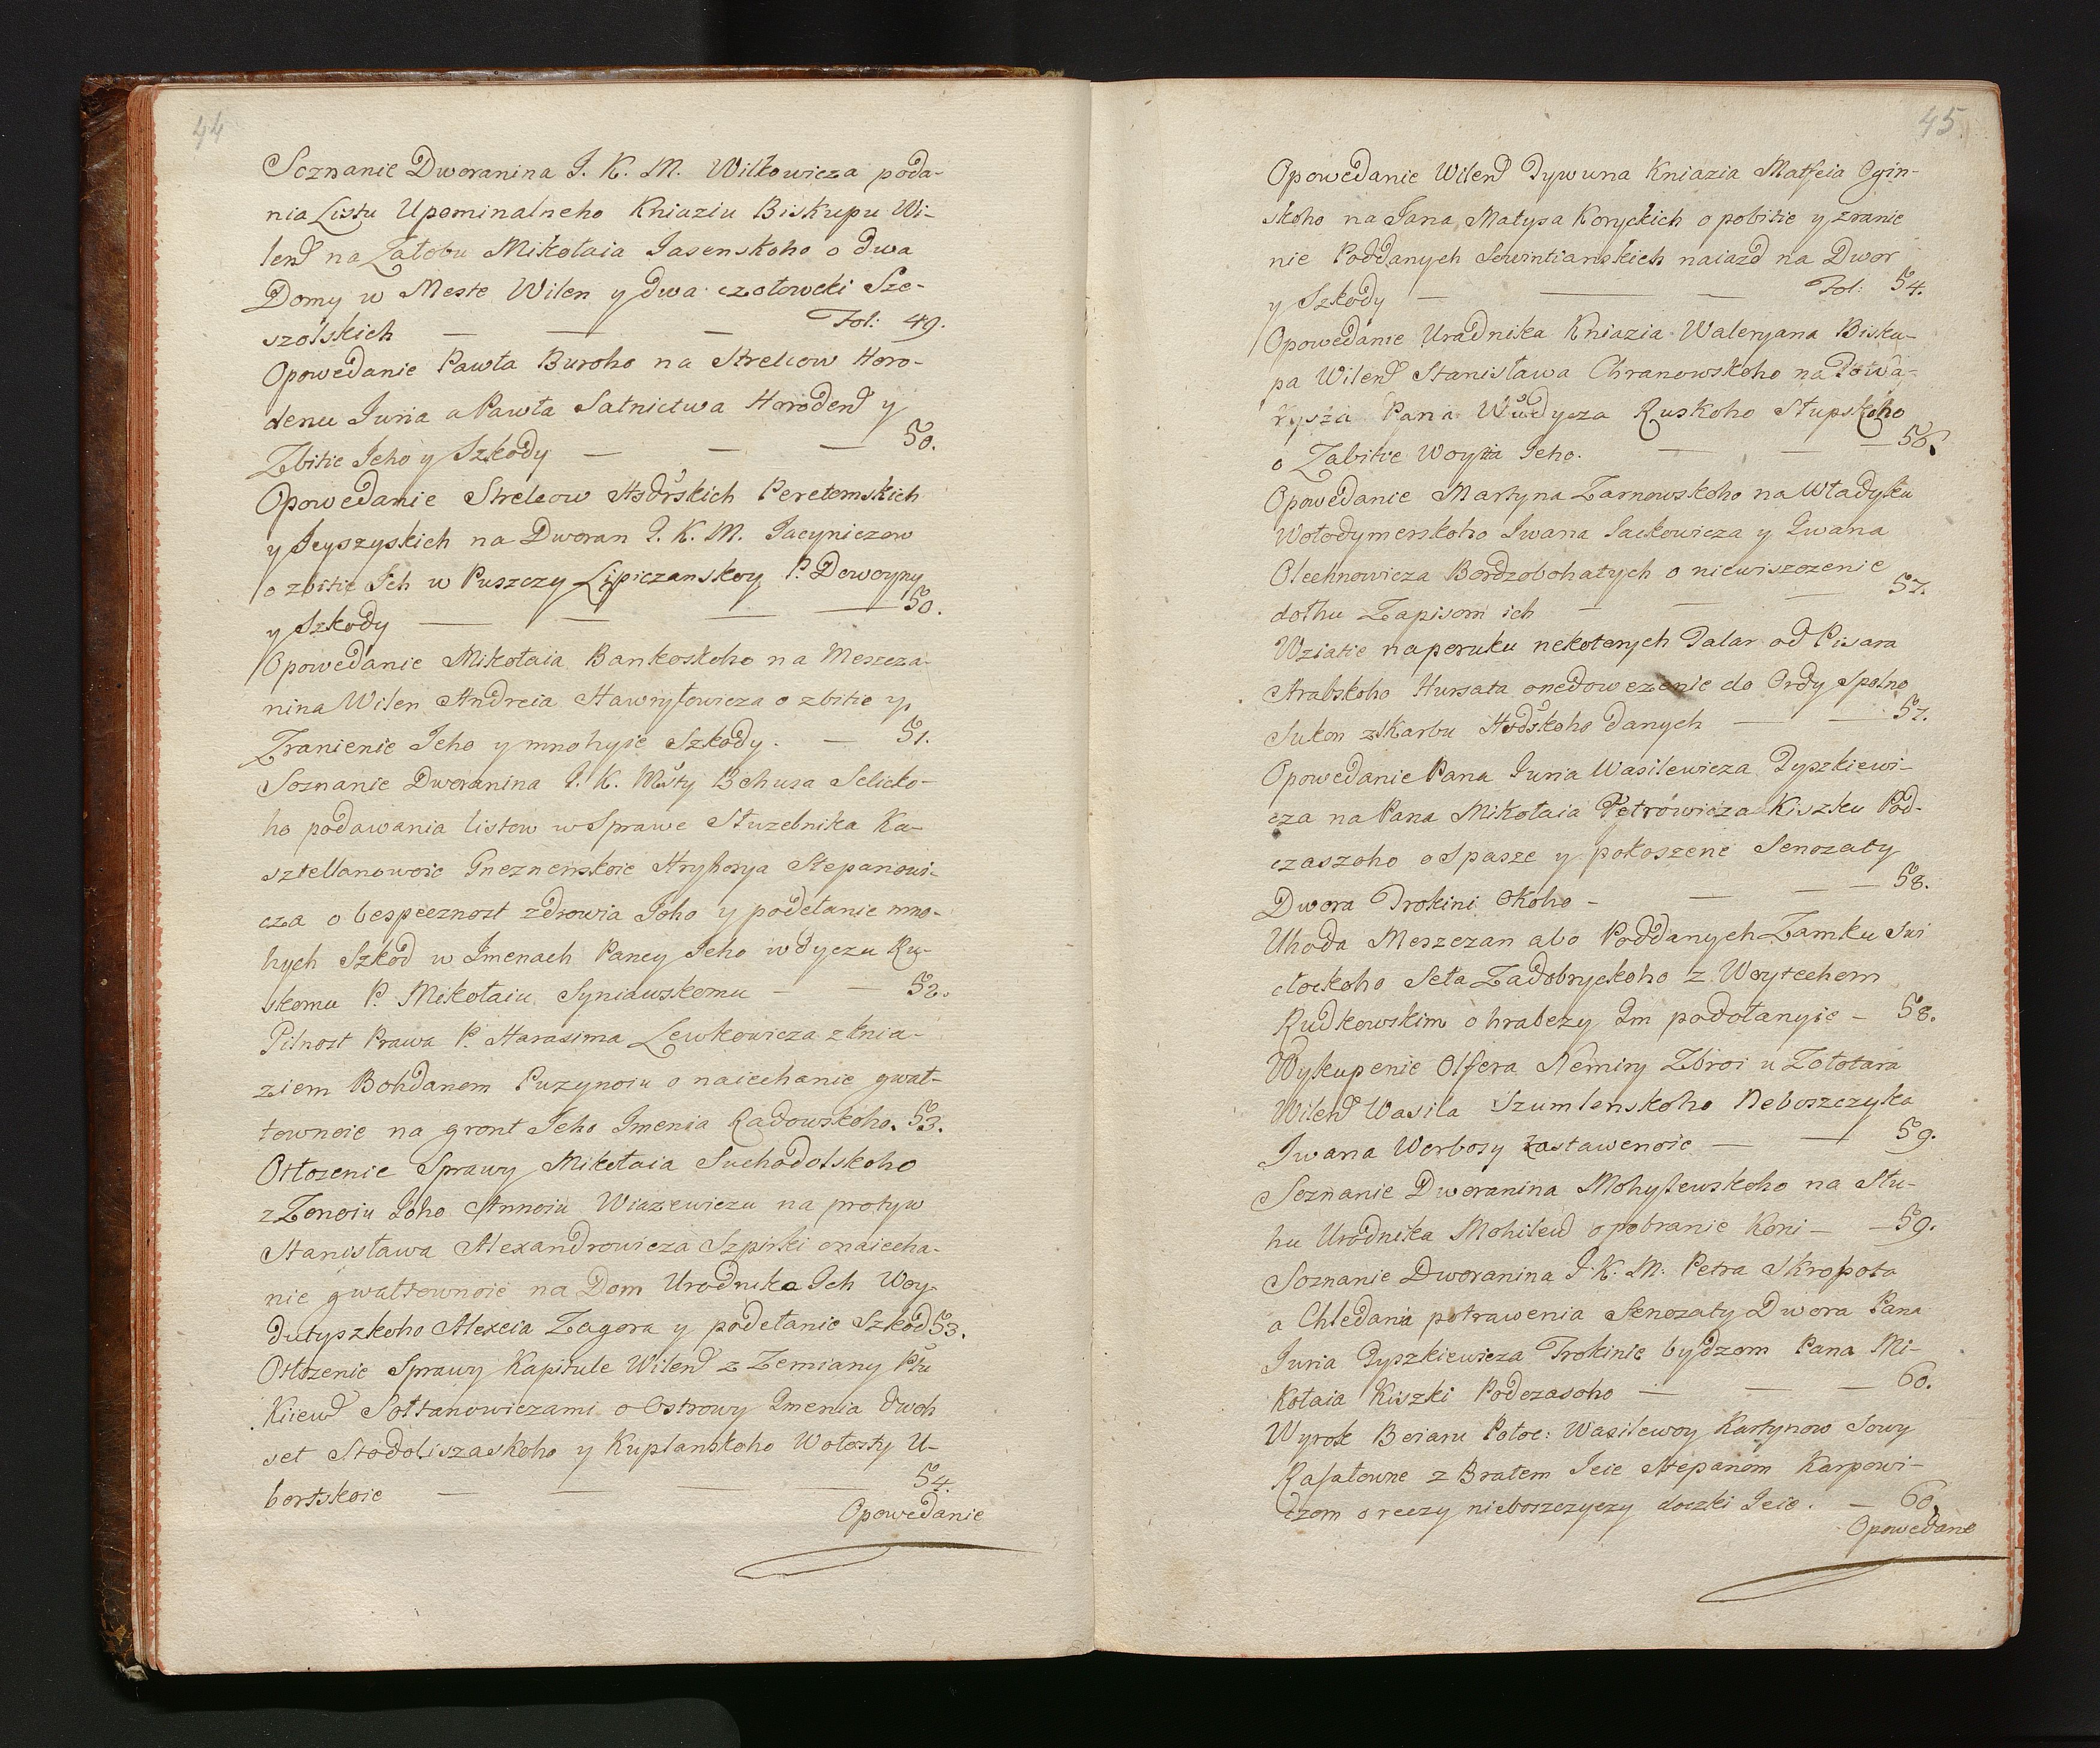 44
Soznanie Dworanina J. K. M. Wilkowicza poda-
nia Listu Upominalneho Kniaziu Biskupu Wi-
leń na Załobu Mikołaia Jasenskoho o dwa
Domy w Meste Wilen y dwa czołowcki Sze-
szolskich — — — Fol: 49.
Opowedanie Pawła Buroho na Strelcow Horo-
denu Juria a Pawła Satnictwa Horoden y
Zbitie Jeho y Szkody — — — 50.
Opowedanie Strelcow Hsdrskich Peretomskich
y Jeyszyskich na Dworan J. K. M. Jacyniczow
o zbitie Jch w Puszczy Lipiczanskoy P. Dowoyny
y Szkody — — — — 50.
Opowedanie Mikołaia Bankoskoho na Meszcza-
nina Wilen Andreia Hawryłowicza o zbitie y
Zranienie Jeho y mnohyie Szkody. — 51.
Soznanie Dworanina J. K. Msty Behusa Selicko-
ho podawania listow w Sprawe Służebnika Ka-
sztellanowoie Gneznenskoie Hryhorya Stepanowi-
cza o bespecznost zdrowia Joho y podełanie mno-
hych Szkod w Jmenach Paney Jeho wdyczu Ru-
skomu P. Mikołaiu Syniawskomu — — 52.
Pilnost Prawa P. Harasima Lewkowicza z knia-
ziem Bohdanom Puzynoiu o naiechanie gwał-
townoie na gront Jeho Jmenia Radowskoho. 53.
Otłozenie Sprawy Mikołaia Suchodolskoho
z Zonoiu Joho Annoiu Wiazewiczu na protyw
Stanisława Alexandrowicza Szpirki o naiecha-
nie gwałtownoie na Dom Urodnika Jch Woy-
dutyszkoho Alexeia Zagora y podełanie Szkod 53.
Otłozenie Sprawy Kapitule Wileń z Zemiany Ptu
Kiiew Sołtanowiczami o Ostrowy Jmenia dwoh
set Stodoliszaskoho y Kuplanskoho Wołosty U-
bortskoie — — — — 54.
Opowedanie
45
Opowedanie Wileń Tywuna Kniazia Matfeia Ogin-
skoho na Jana, Matysa Koryckich o pobitie y zranie
nie Poddanych Swintianskich naiazd na Dwor
y Szkody — — — Fol: 54.
Opowedanie Uradnika Kniazia Waleryana Bisku-
pa Wileń Stanisława Chranowskoho na Towa-
rysza Pana Wudysza Ruskoho Słupskoho
o Zabitie Woyta Jeho. — — 56.
Opowedanie Martyna Zarnowskoho na Władyku
Wołodymerskoho Jwana Jackowicza y Jwana
Olechnowicza Bordzobohatych o niewiszczenie
dołhu Zapisom ich — — — 57.
Wziatie na poruku nekotorych Talar od Pisara
Arabskoho Hursata o nedowezenie do Ordy Spolno
Sukon z Skarbu Hsdskoho danych — — 57.
Opowedanie Pana Juria Wasilewicza Tyszkiewi-
cza na Pana Mikołaia Petrowicza Kiszku Pod-
czaszoho o Spasze y pokoszene Senozaty
Dwora Trokini Okoho — — — — 58.
Uhoda Meszczan abo Poddanych Zamku Swi
słockoho Seła Zadobryckoho z Woytechom
Rudkowskim o hrabezy Jm podołanyie — 58.
Wykupenie Olfera Nemiry Zbroi u Zołotara
Wileń Wasila Szumlenskoho Neboszczyka
Jwana Worbosy zastawenoie — — 59.
Soznanie Dworanina Mohylewskoho na Słu-
hu Urodnika Mohilew o pobranie Koni — — 59.
Soznanie Dworanina J. K. M. Petra Skropota
a Chledania potrawenia Senozaty Dwora Pana
Juria Tyszkiewicza Trokinie bydzom Pana Mi-
kołaia Kiszki Podczasoho — — — 60.
Wyrok Boiaru Połoc: Wasilewoy Kartynow Sowy
Rafałowne z Bratem Jeie Stepanom Karpowi-
czom o reczy nieboszczyczy doczki Jeie. — 60.
Opowedane